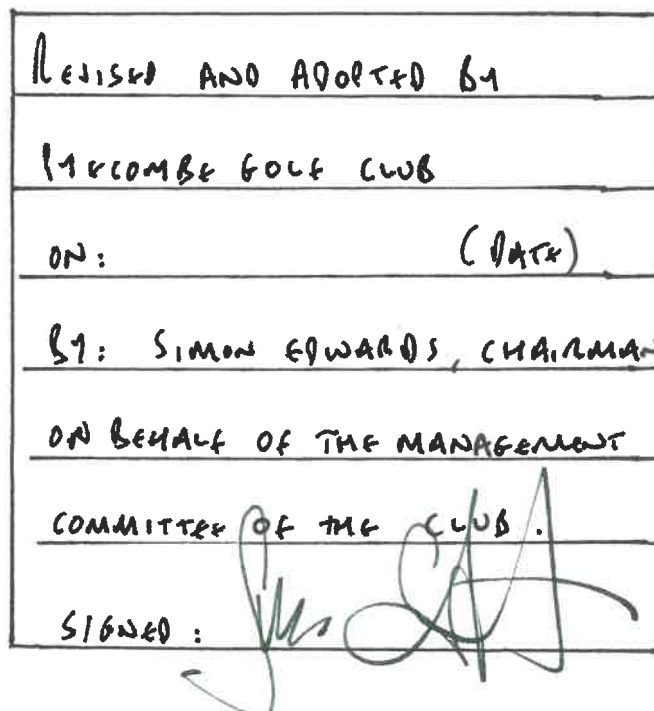 REVISED AND ADOPTED BY
PYECOMBE GOLF CLUB
ON: (DATE)
BY: SIMON EDWARDS, CHAIRMAN
ON BEHALF OF THE MANAGEMENT
COMMITTEE OF THE CLUB.
SIGNED: